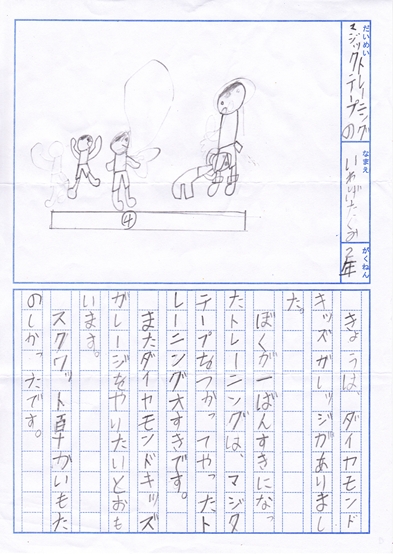 だいめい
マジックテープの
トレーニング
なまえ
がくねん
2年
④
きょうは、ダイヤモンド
キッズガレッジがありまし
た。
ぼくが一ばんすきになっ
たトレーニングは、マジク
テープをつかってやったト
レーニング大すきです。
またダイヤモンドキッズ
ガレージをやりたいとおも
います。
スクワット百かいもた
のしかったです。